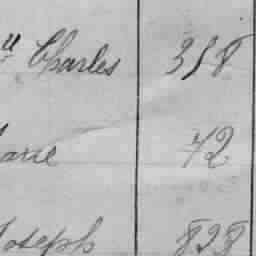 Charles 358
arie 72
Joseph 828